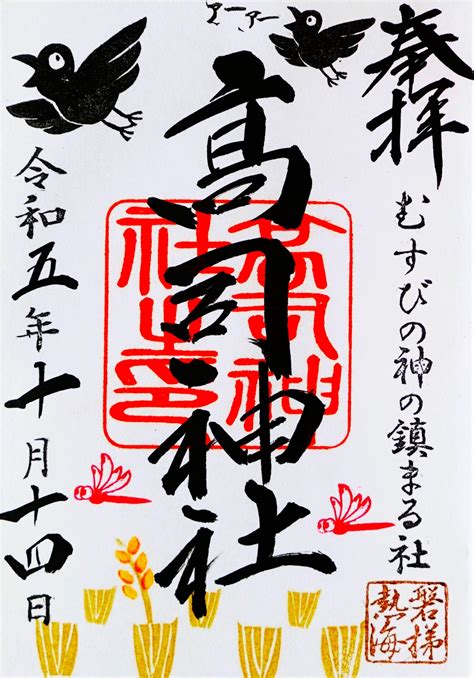 奉拝
むすびの神の鎮まる社
アーアー
高司神社
高司神社之印
令和五年十月十四日
磐梯熱海